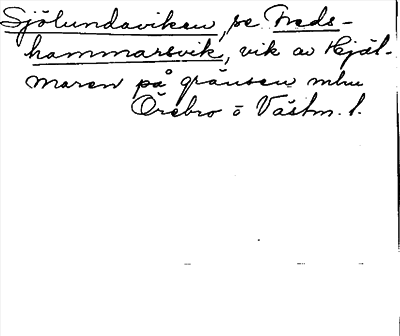 Sjölundaviken, se Freds-
hammarsvik, vik av Hjäl-
maren på gränsen mlu
Örebro o Västm. l.